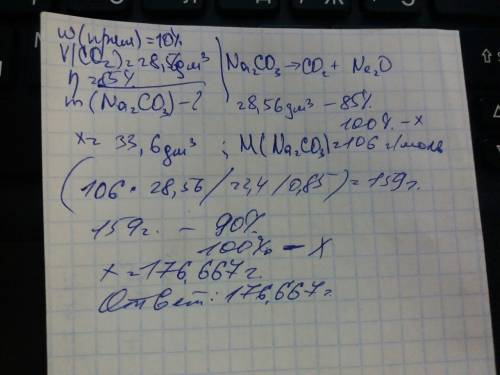 w(прим)=10%
V(CO₂)=28,56дм³ | Na₂CO₃→CO₂+Na₂O
η=85%
m(Na₂CO₃)-? 28,56дм³ - 85%
100% - x
x= 33,6дм³ ; M(Na₂CO₃)=106 г/моль
(106 * 28,56/22,4/0,85)=159г.
159г. - 90%
100% - X
x=176,667г.
Ответ: 176,667г.